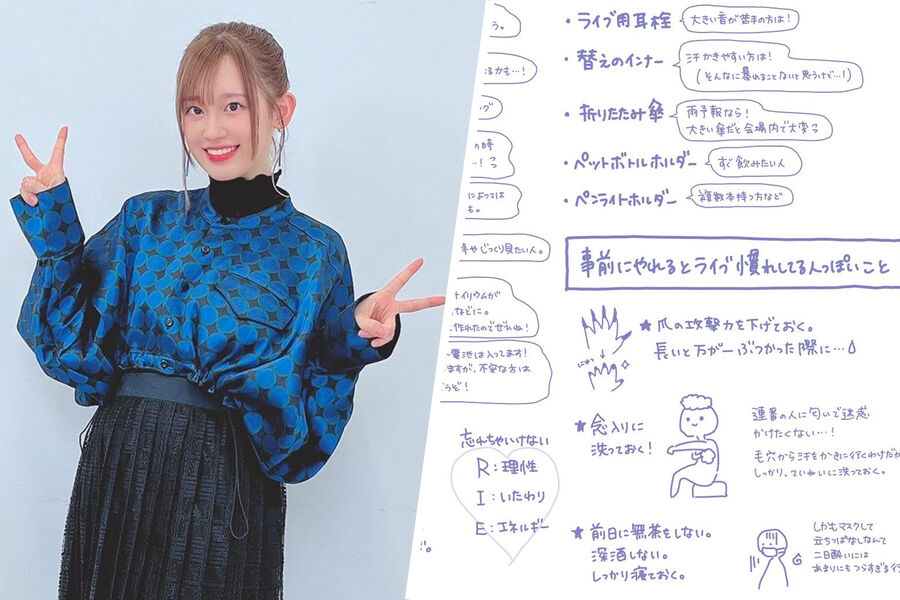 う。
るかも…!
ング
の時
…!る
によっては
も。
手やじっくり見たい人。
トイリウムが
などに。
作れたのでぜひね!
電池は入ってます!
ますが、不安な方は
うぞ!
忘れちゃいけない
R:理性
I:いたわり
E:エネルギー
・ライブ用耳栓
大きい音が苦手の方は!
・替えのインナー
汗かきやすい方は!
(そんなに暴れることないと思うけど…!)
・折りたたみ傘
雨予報なら!
大きい傘だと会場内で大変る
・ペットボトルホルダー
すぐ飲みたい人
・ペンライトホルダー
複数本持つ方など
事前にやれるとライブ慣れしてる人っぽいこと
★爪の攻撃力を下げておく。
長いと万が一ぶつかった際に…
★念入りに
洗っておく!
連番の人に匂いで迷惑
かけたくない…!
毛穴から汗をかきに行くわけだか
しっかり、ていねいに洗っておく。
★前日に無茶をしない。
深酒しない。
しっかり寝ておく。
しかもマスクして
立ちっぱなしなんて
二日酔いには
あまりにもつらすぎる行